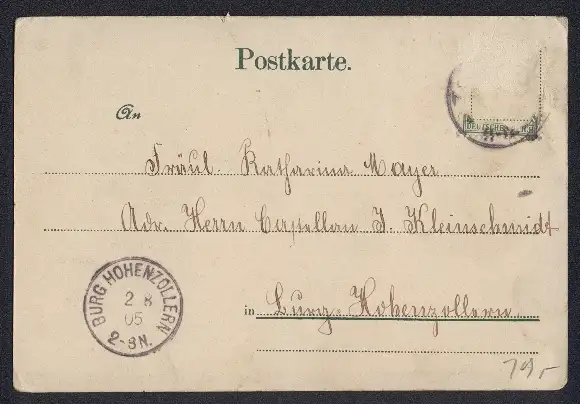 Postkarte.
An
Fräul. Katharina Mayer
Adr. Herrn Castellan J. Kleinschmidt
in Burg-Hohenzollern
BURG HOHENZOLLERN
2 8
05
2-3N.